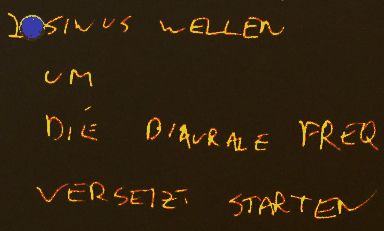 2 SINUS WELLEN
UM
DIE DIAURALE FREQ
VERSETZT STARTEN